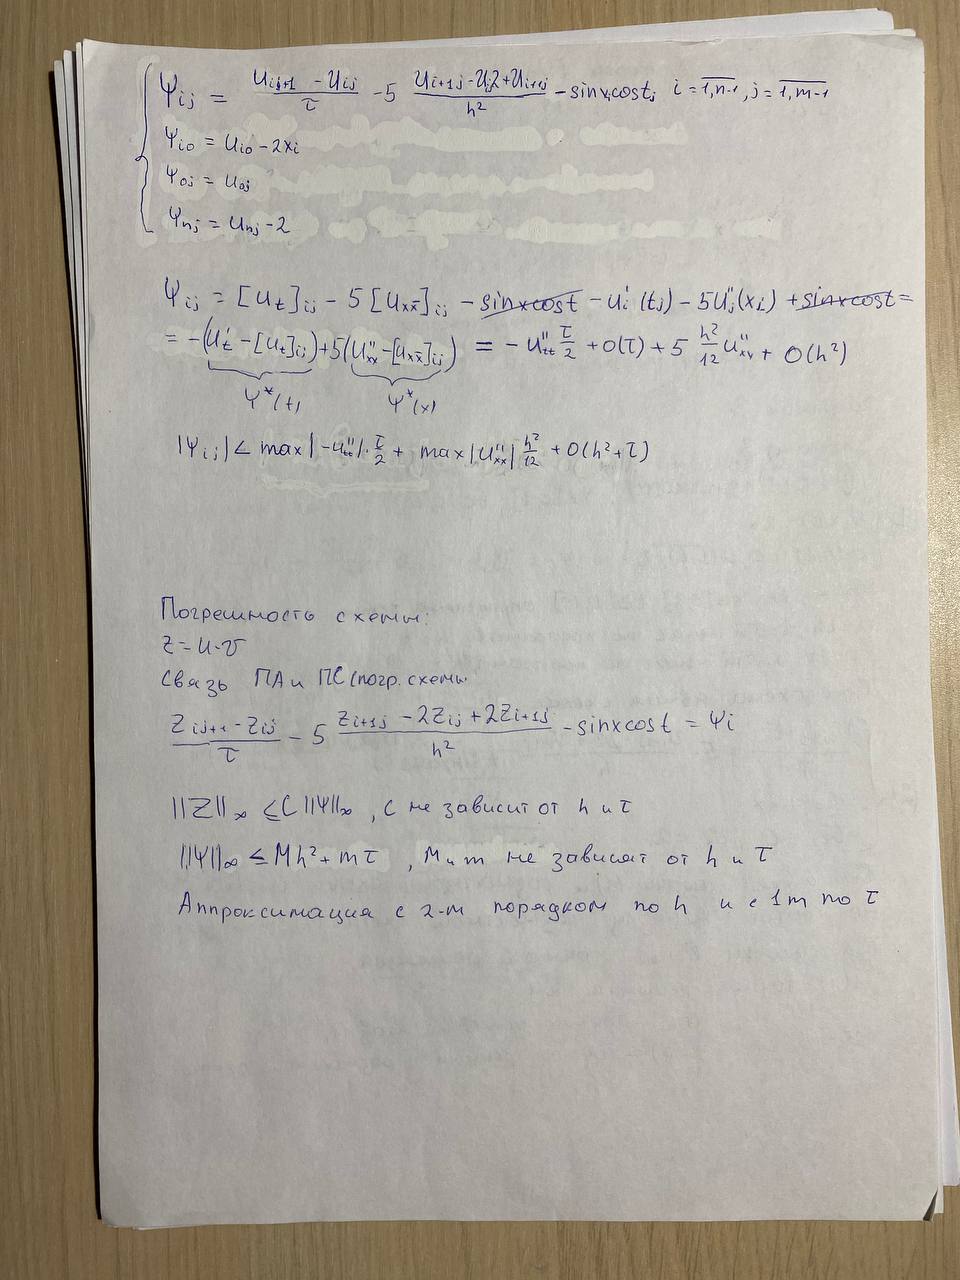 Ψij = (Uij+1 - Uij)/τ - 5 (Ui+1j - Uij2 + Ui+1j)/h² - sinxicostj i = 1,n-1, j = 1,m-1
Ψi0 = Ui0 - 2xi
Ψ0j = U0j
Ψnj = Unj - 2
Ψij = [Ut]ij - 5[Uxx̄]ij - sinxcost - Ui'(tj) - 5Uj''(xi) + sinxcost =
= -(Ut' - [Ut]ij) + 5(Uxx'' - [Uxx̄]ij) = -Utt'' τ/2 + O(τ) + 5 h²/12 Uxx'' + O(h²)
Ψ*(t) Ψ*(x)
|Ψij| ≤ max|-Utt''|·τ/2 + max|Uxx''| h²/12 + O(h²+τ)
Погрешность схемы:
Z = U - V
Связь ПА и ПС (погр. схемы
(Zij+1 - Zij)/τ - 5 (Zi+1j - 2Zij + 2Zi+1j)/h² - sinxcost = Ψi
||Z||∞ ≤ C ||Ψ||∞, C не зависит от h и τ
||Ψ||∞ ≤ Mh² + mτ, M и m не зависят от h и τ
Аппроксимация с 2-м порядком по h и с 1м по τ